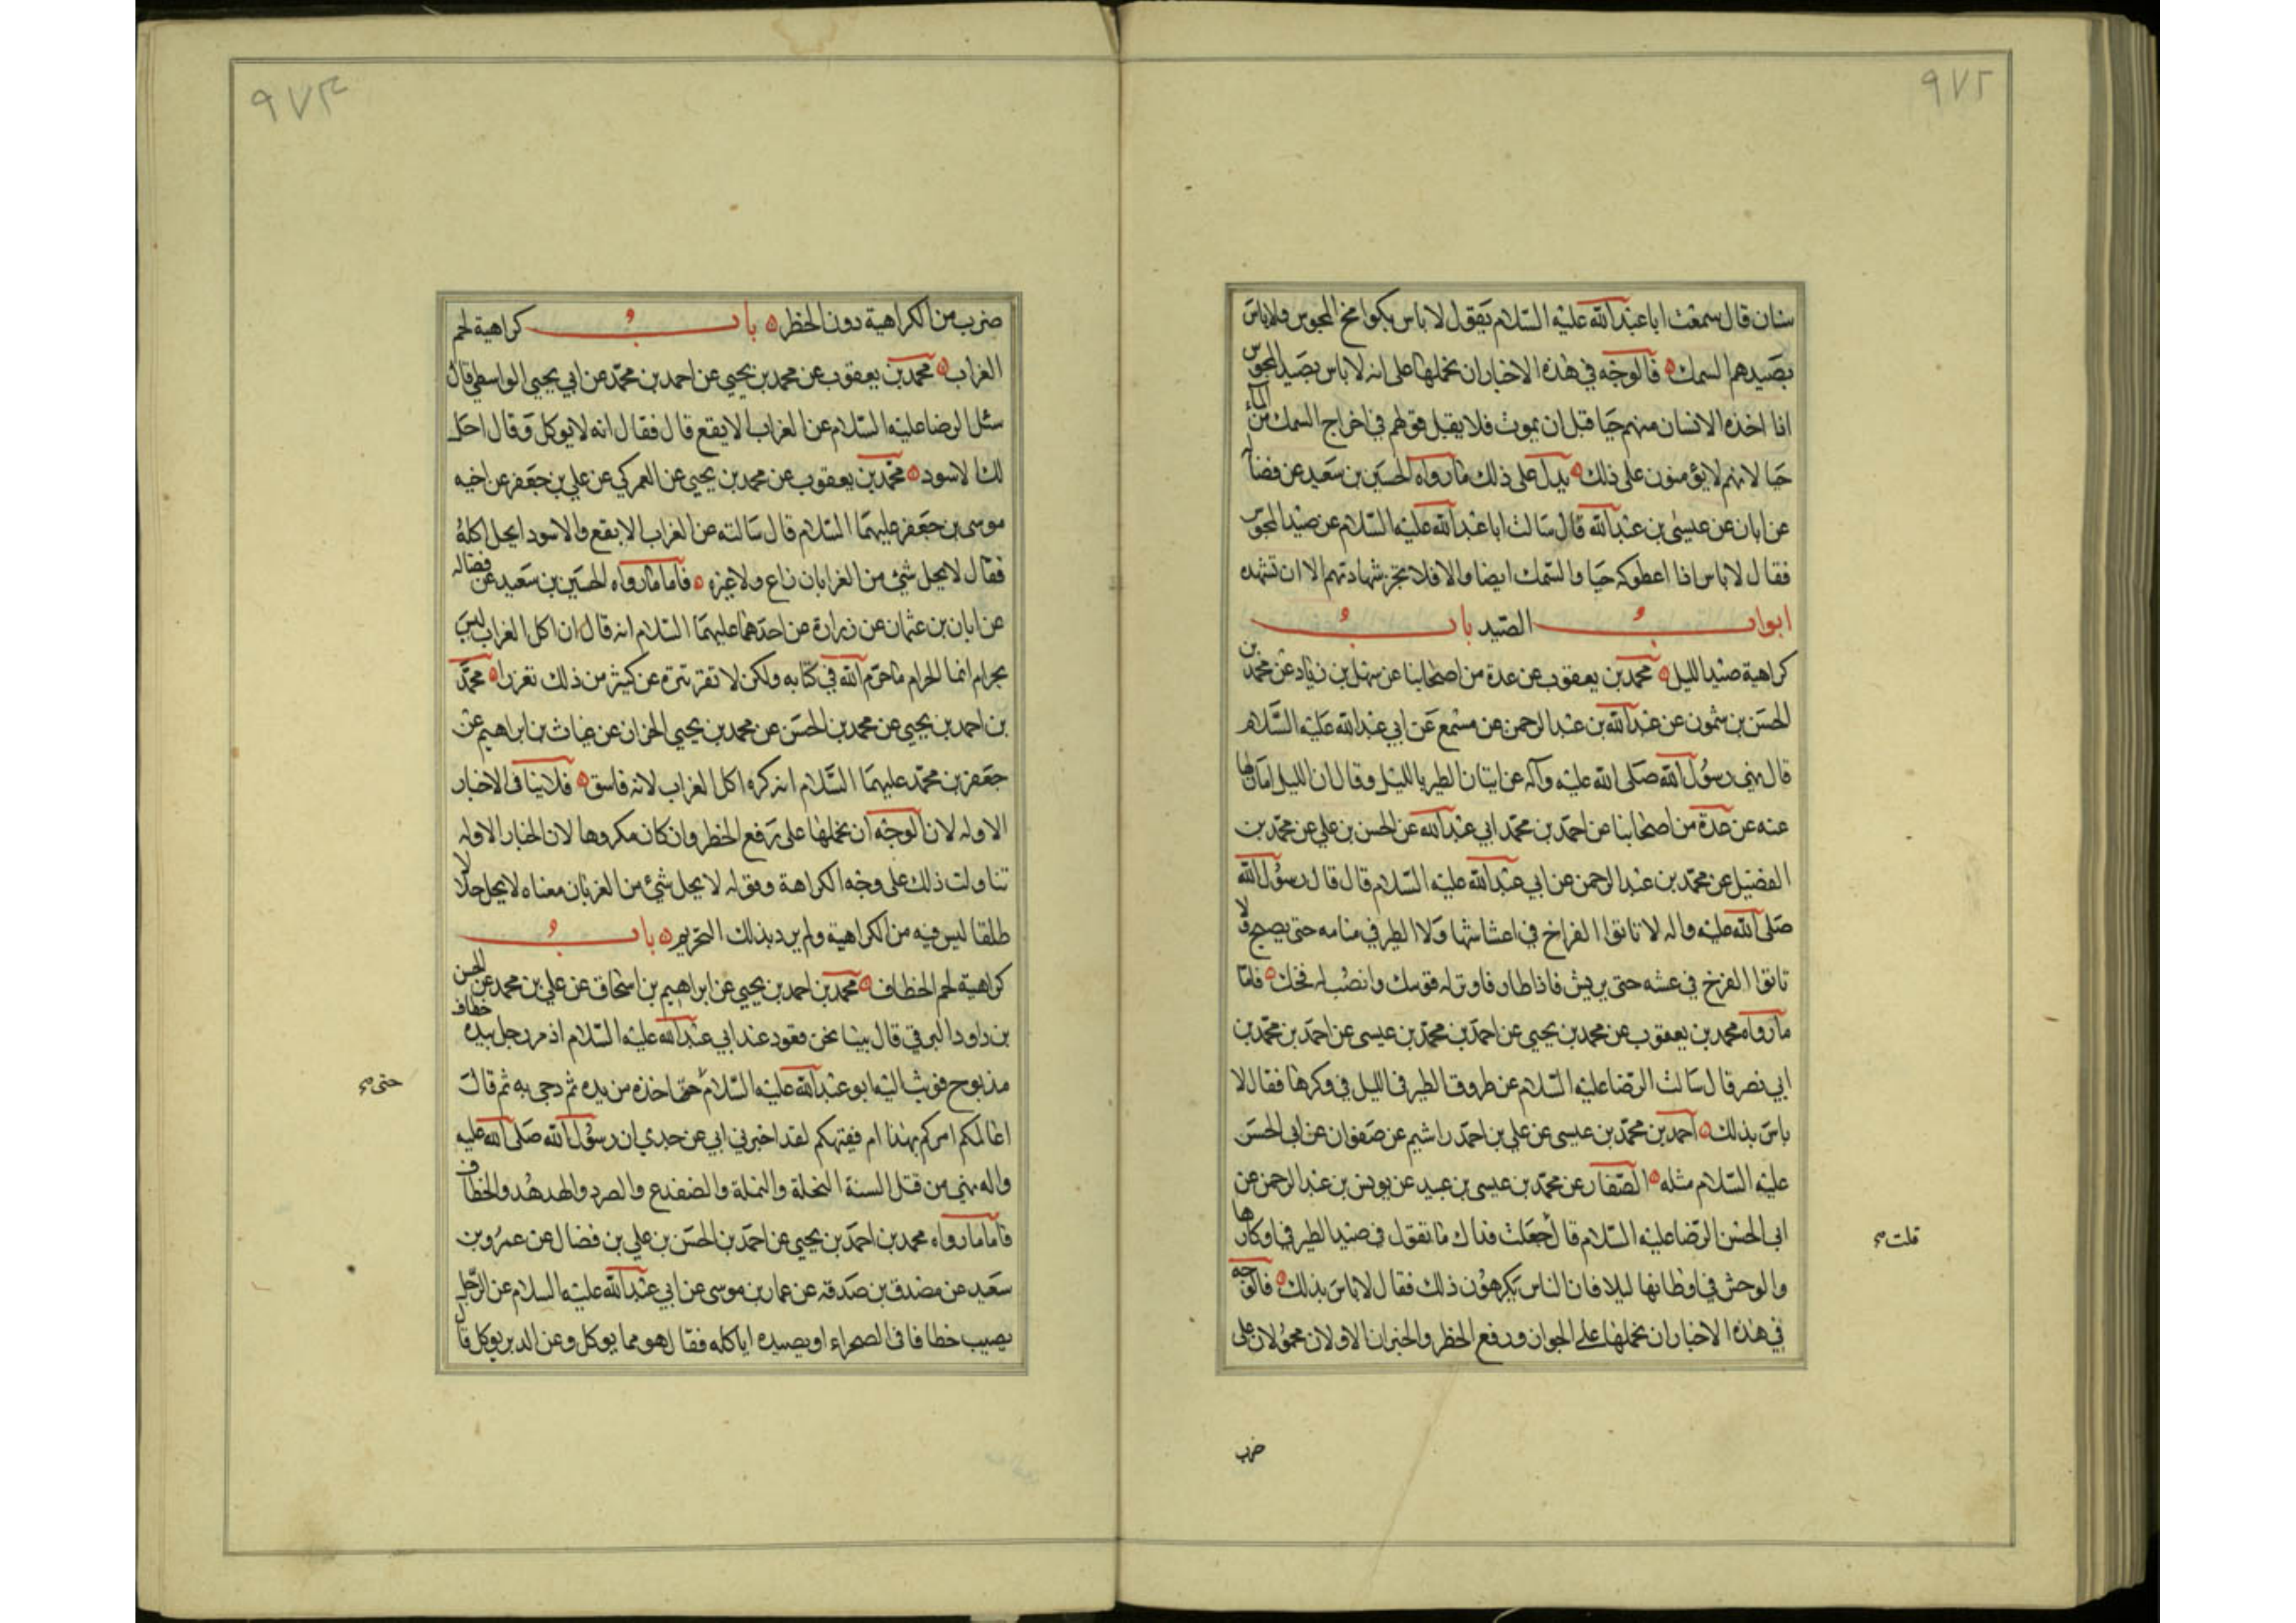 ٩٧٢
سنان قال سمعت ابا عبد الله عليه السلام يقول لا باس بكوامخ المجوس ولا باس
بصيدهم السمك فالوجه في هذه الاخبار ان نحملها على انه لا باس بصيد المجوس
اذا اخذه الانسان منهم حيا قبل ان يموت فلا يقبل قولهم في اخراج السمك من الماء
حيا لانهم لا يؤمنون على ذلك يدل على ذلك ما رواه الحسين بن سعيد عن فضالة
عن ابان عن عيسى بن عبد الله قال سالت ابا عبد الله عليه السلام عن صيد المجوس
فقال لا باس اذا اعطوكه حيا والسمك ايضا والا فلا تجز شهادتهم الا ان تشهده
ابواب الصيد باب
كراهية صيد الليل محمد بن يعقوب عن عدة من اصحابنا عن سهل بن زياد عن محمد بن
الحسن بن شمون عن عبد الله بن عبد الرحمن عن مسمع عن ابي عبد الله عليه السلام
قال نهى رسول الله صلى الله عليه وآله عن اتيان الطير بالليل وقال ان الليل امان لها
عنه عن عدة من اصحابنا عن احمد بن محمد ابي عبد الله عن الحسن بن علي عن محمد بن
الفضيل عن محمد بن عبد الرحمن عن ابي عبد الله عليه السلام قال قال رسول الله
صلى الله عليه واله لا تاتوا الفراخ في اعشاشها ولا الطير في منامه حتى يصبح ولا
تاتوا الفرخ في عشه حتى يريش فاذا طار فاوتر له قوسك وانصب له فخك فاما
ما رواه محمد بن يعقوب عن محمد بن يحيى عن احمد بن محمد بن عيسى عن احمد بن محمد بن
ابي نصر قال سالت الرضا عليه السلام عن طروق الطير في الليل في وكرها فقال لا
باس بذلك احمد بن محمد بن عيسى عن علي بن احمد راشيم عن صفوان عن ابى الحسن
عليه السلام مثله الصفار عن محمد بن عيسى بن عبيد عن يونس بن عبد الرحمن عن
ابى الحسن الرضا عليه السلام قال جعلت فداك ما تقول في صيد الطير في اوكارها
قلت
والوحش في اوطانها ليلا فان الناس يكرهون ذلك فقال لا باس بذلك فالوجه
في هذه الاخبار ان نحملها على الجواز ورفع الحظر والخبران الاولان محمولان على
ضرب
٩٧٣
ضرب من الكراهية دون الحظر باب كراهية لحم
الغراب محمد بن يعقوب عن محمد بن يحيى عن احمد بن محمد عن ابي يحيى الواسطي قال
سئل الرضا عليه السلام عن الغراب الابقع قال فقال انه لا يوكل وقال احل
لك الاسود محمد بن يعقوب عن محمد بن يحيى عن العمركي عن علي بن جعفر عن اخيه
موسى بن جعفر عليهما السلام قال سالته عن الغراب الابقع والاسود ايحل اكله
فقال لا يحل شئ من الغربان زاع ولا غيره فاما ما رواه الحسين بن سعيد عن فضاله
عن ابان بن عثمان عن زرارة عن احدهما عليهما السلام انه قال ان اكل الغراب ليس
بحرام انما الحرام ما حرم الله في كتابه ولكن الانفس تتنزه عن كثير من ذلك تقززا محمد
بن احمد بن يحيى عن محمد بن الحسن عن محمد بن يحيى الخزاز عن غياث بن ابراهيم عن
جعفر بن محمد عليهما السلام انه كره اكل الغراب لانه فاسق فلا ينافى الاخبار
الاوله لان الوجه ان نحملها على رفع الحظر وان كان مكروها لان الخبار الاوله
تناولت ذلك على وجه الكراهة وقوله لا يحل شئ من الغربان معناه لا يحل حلالا
طلقا ليس فيه من الكراهية ولم يرد بذلك التحريم باب
كراهية لحم الخطاف محمد بن احمد بن يحيى عن ابراهيم بن اسحاق عن علي بن محمد عن الحسن
بن داود البرقي قال بينا نحن قعود عند ابي عبد الله عليه السلام اذ مر رجل بيده خطاف
مذبوح فوثب اليه ابو عبد الله عليه السلام حتى اخذه من يده ثم دحى به ثم قال
حتى
اعالمكم امركم بهذا ام فقيهكم لقد اخبرني ابي عن جدي ان رسول الله صلى الله عليه
واله نهى من قتل الستة النحلة والنملة والضفدع والصرد والهدهد والخطاف
فاما ما رواه محمد بن احمد بن يحيى عن احمد بن الحسن بن علي بن فضال عن عمرو بن
سعيد عن مصدق بن صدقه عن عمار بن موسى عن ابي عبد الله عليه السلام عن الرجل
يصيب خطافا فى الصحراء او يصيده اياكله فقال هو مما يوكل وعن الدبر يوكل قال